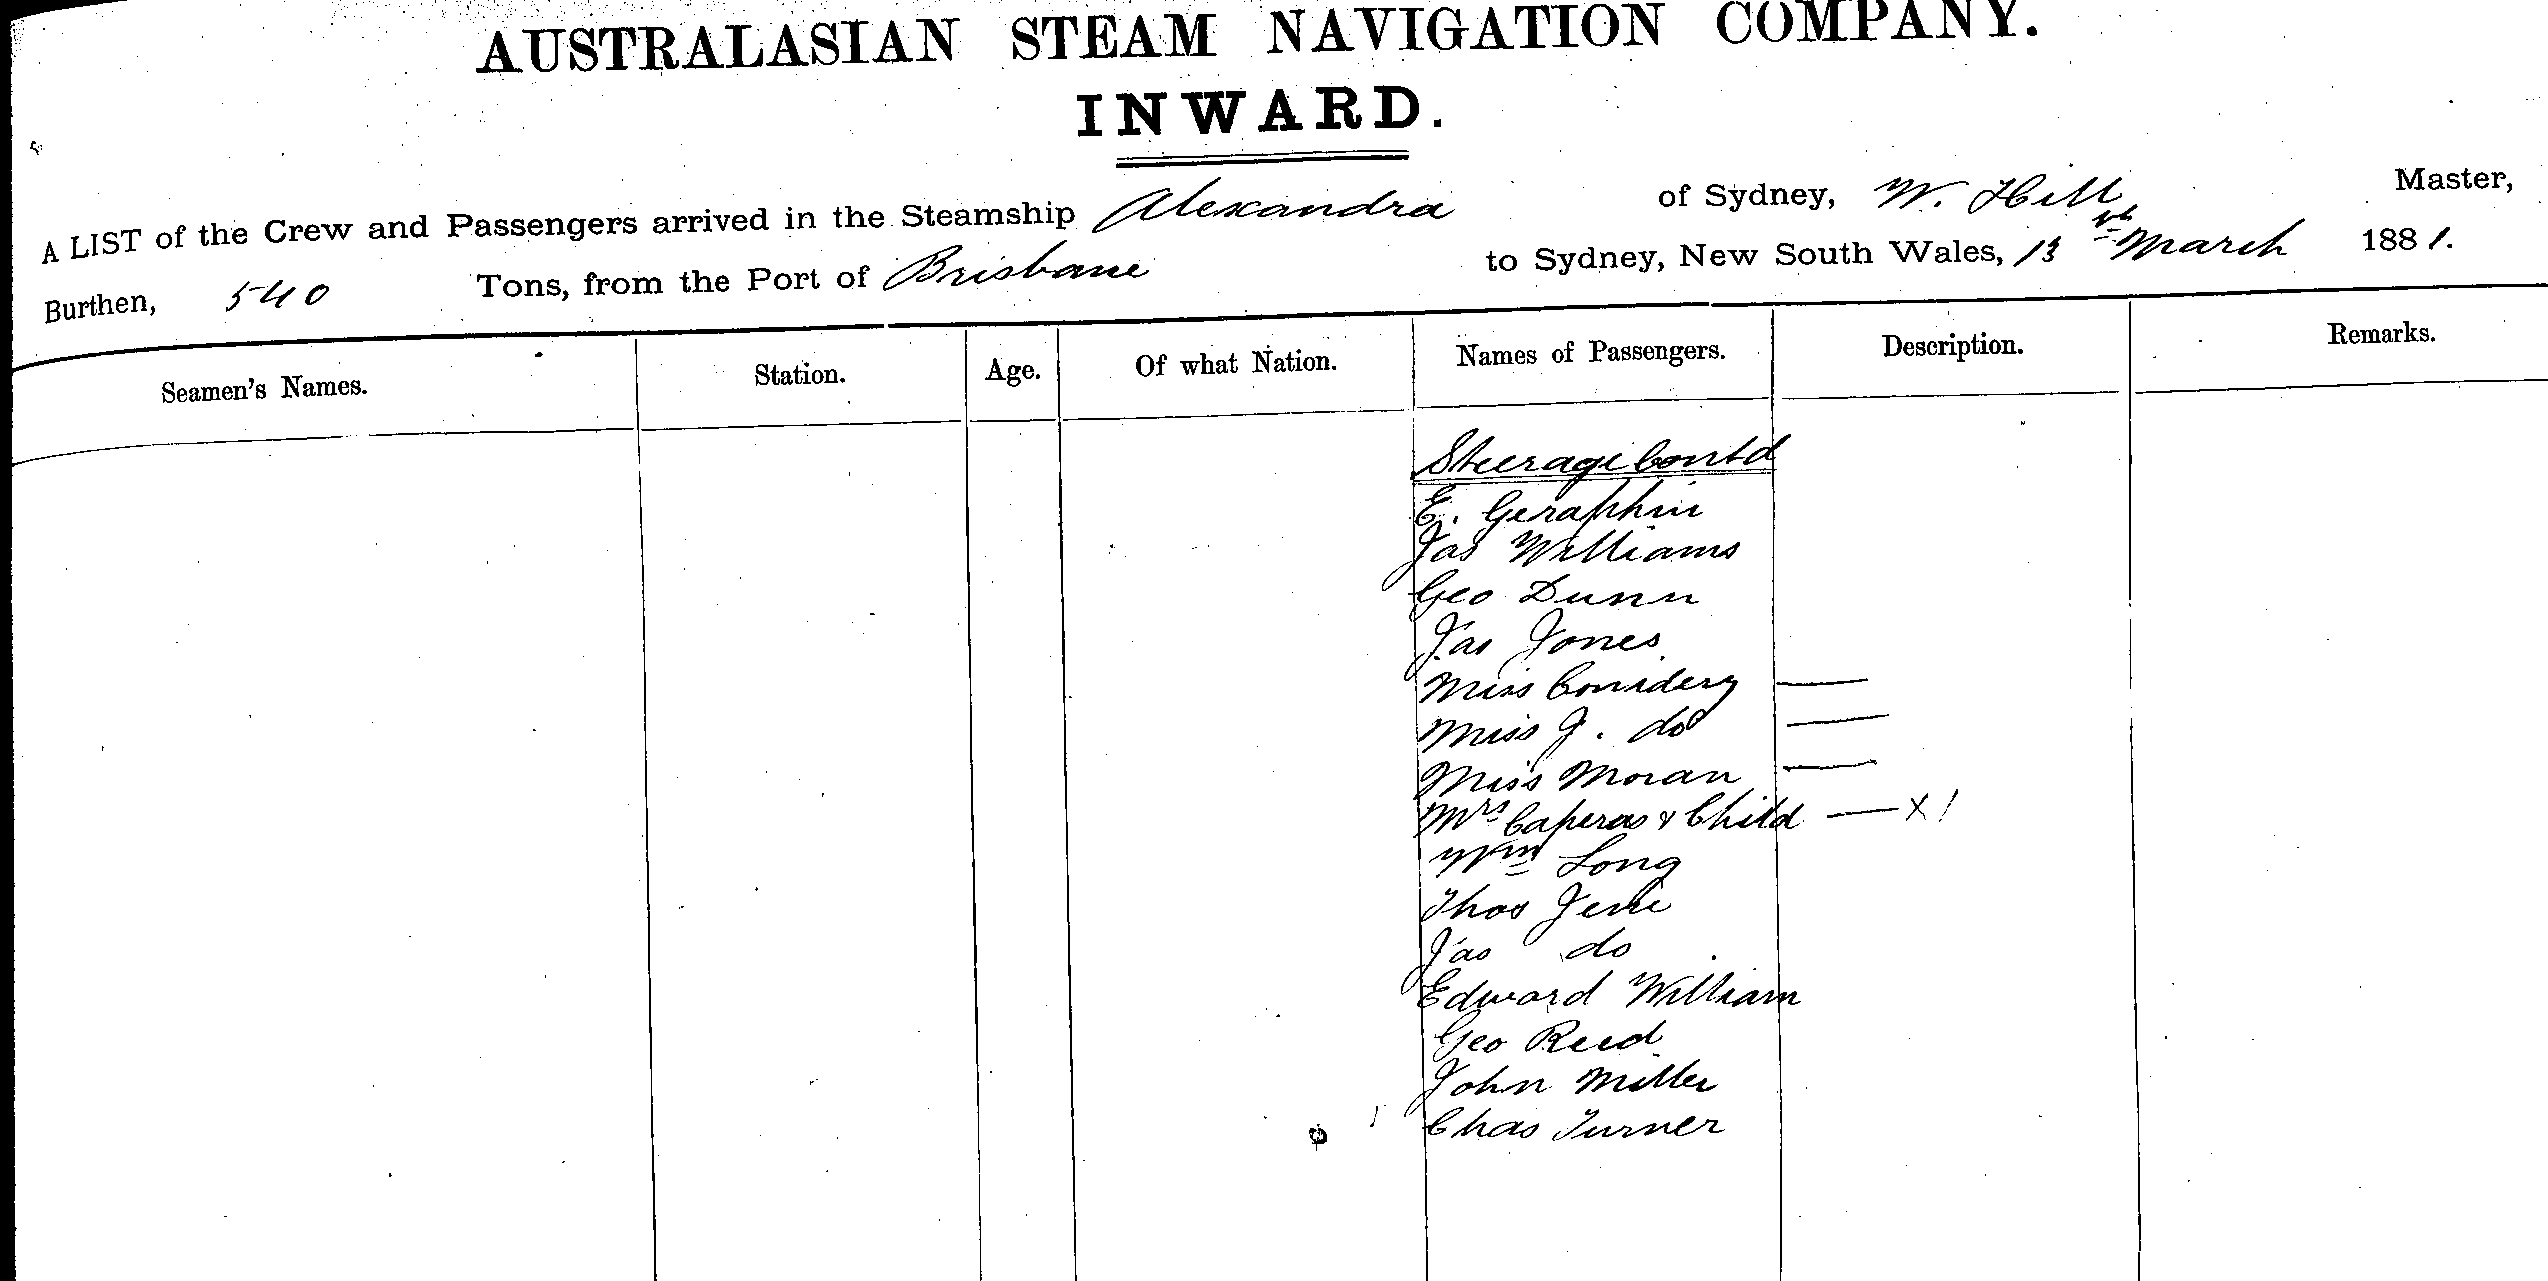 AUSTRALASIAN STEAM NAVIGATION COMPANY.
INWARD.
A LIST of the Crew and Passengers arrived in the Steamship Alexandra of Sydney, W. Hill, Master,
Burthen, 540 Tons, from the Port of Brisbane to Sydney, New South Wales, 13th March 1881.
Seamen's Names. Station. Age. Of what Nation. Names of Passengers. Description. Remarks.
Steerage Contd
E. Geraphin
Jas Williams
Geo Dunn
Jas Jones
Miss Cowdery —
Miss J. do —
Miss Moran —
Mrs Caperas & Child — X 1
Wm Long
Thos
Jas do
Edward William
Geo Reed
John Miller
Chas Turner